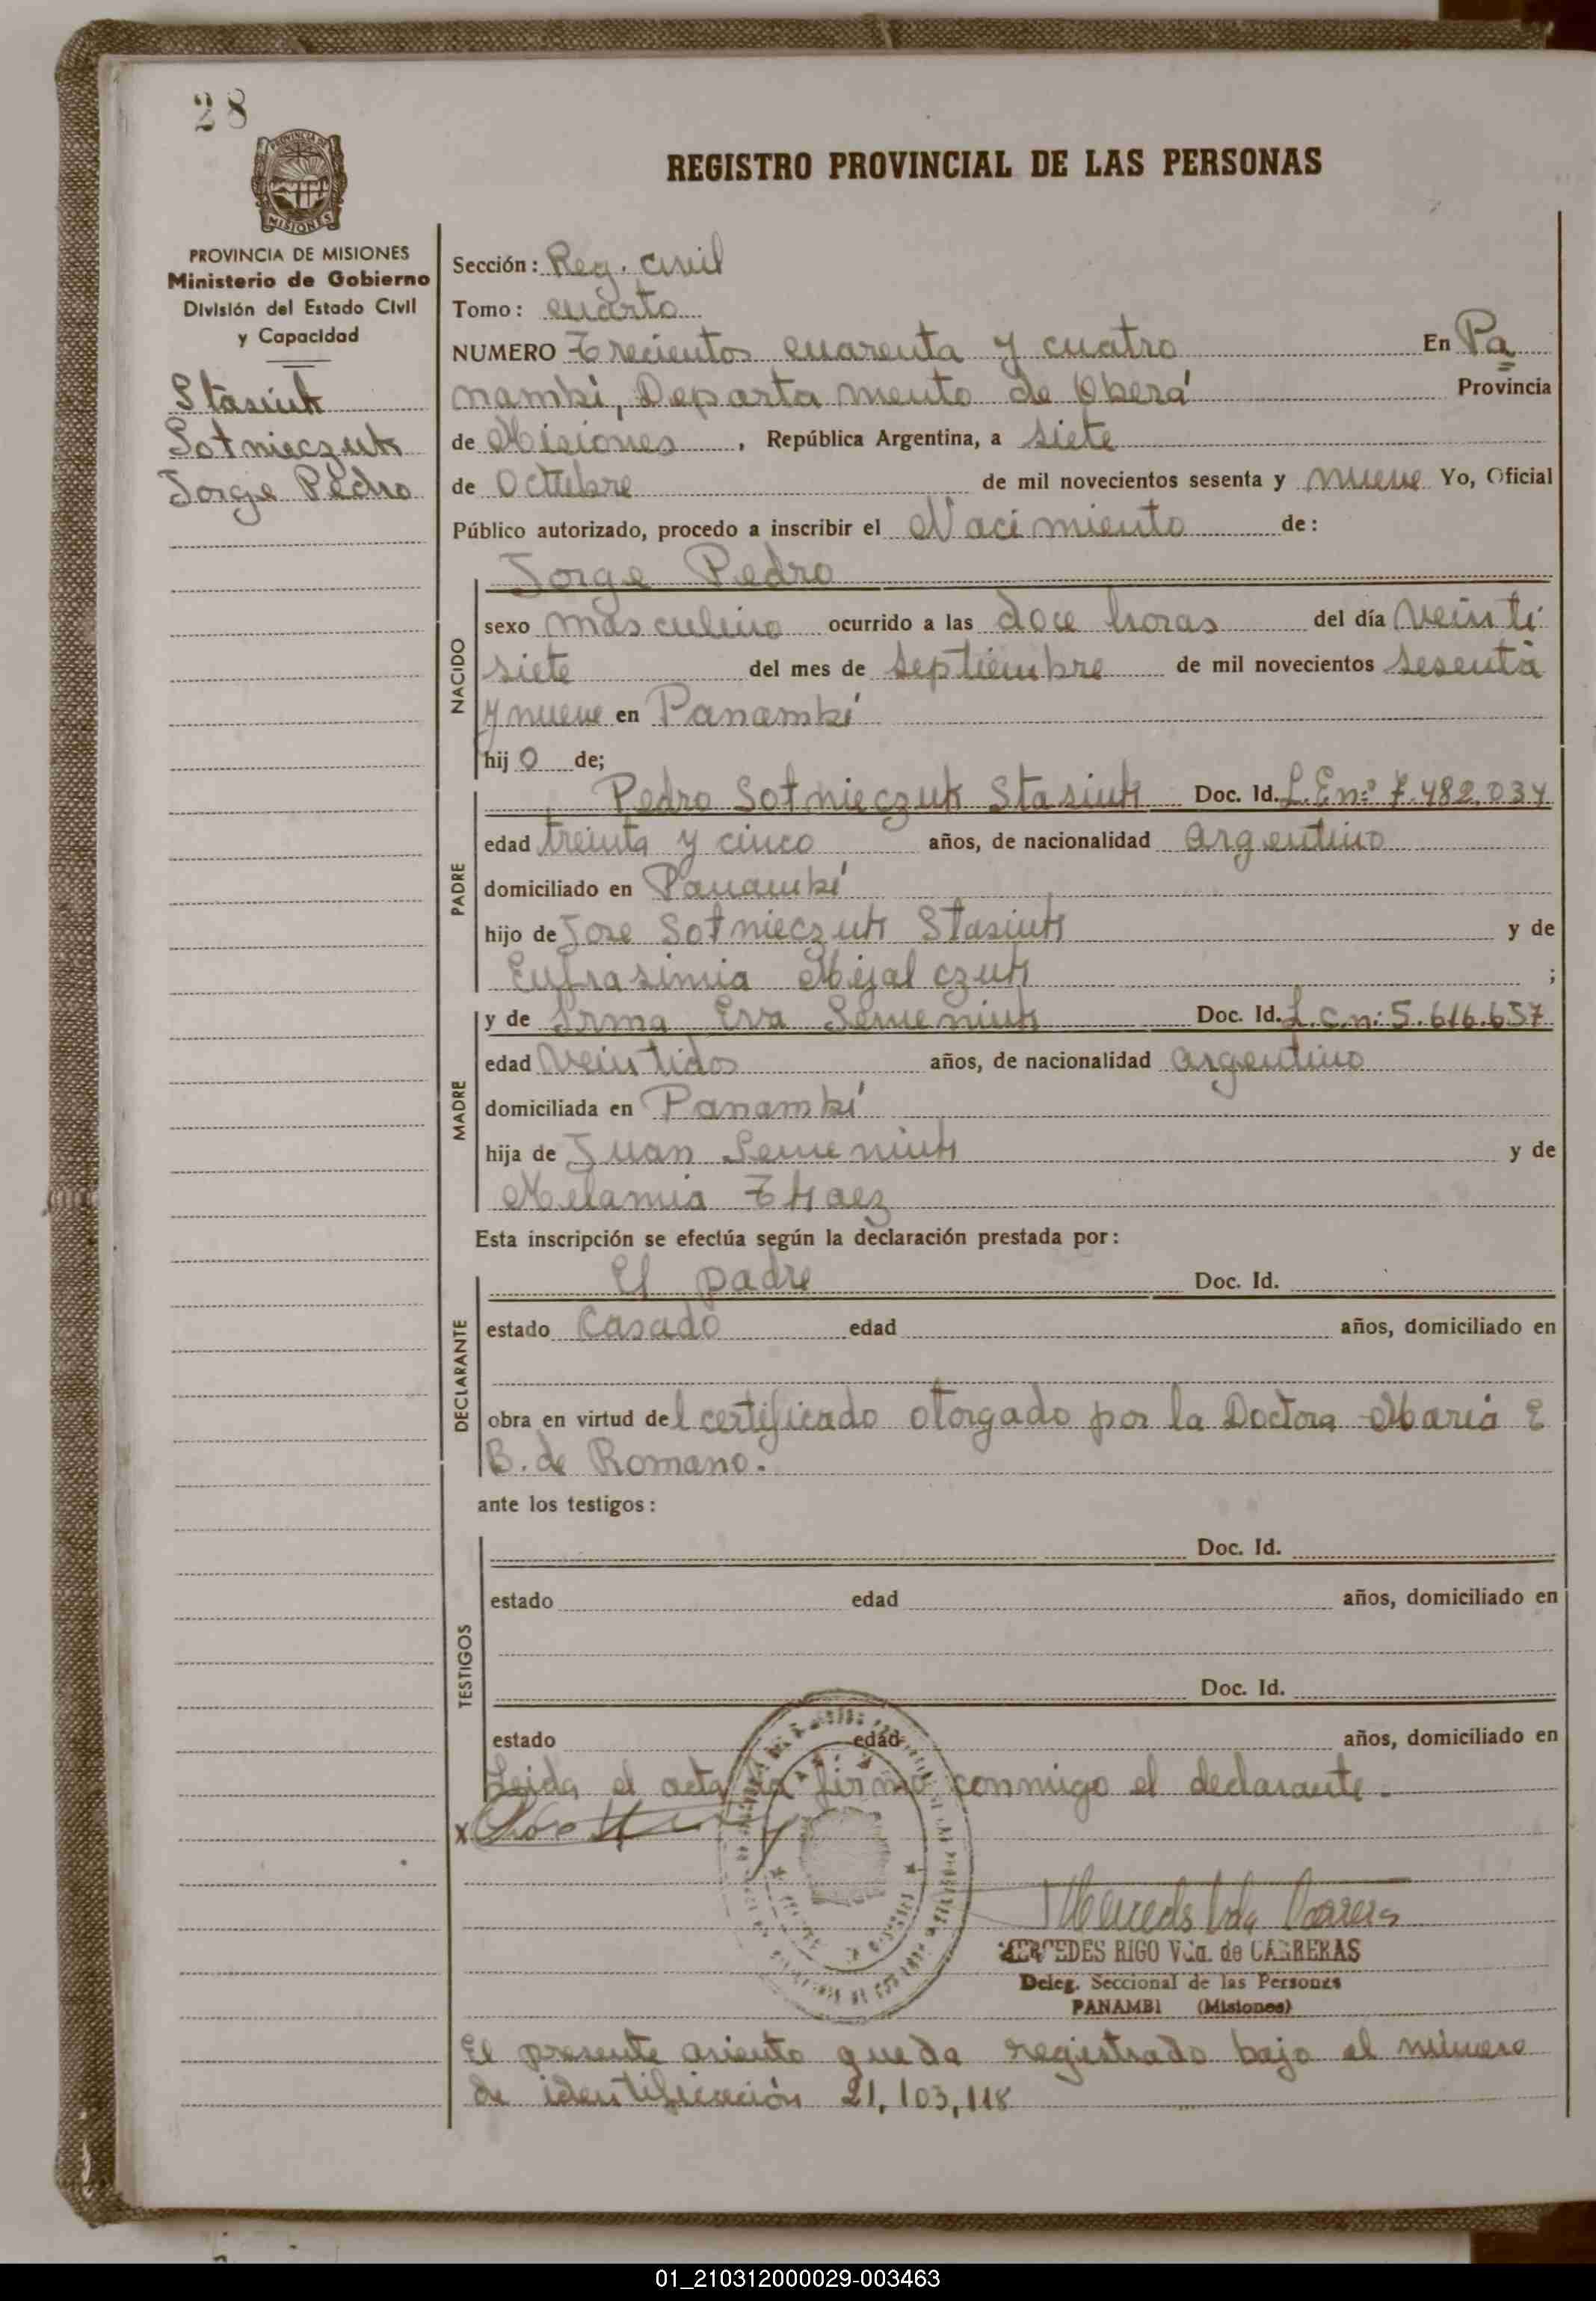 28
PROVINCIA DE
MISIONES
PROVINCIA DE MISIONES
Ministerio de Gobierno
División del Estado Civil
y Capacidad
Stasiuk
Sotnieczuk
Jorge Pedro
REGISTRO PROVINCIAL DE LAS PERSONAS
Sección: Reg. Civil
Tomo: cuarto
NUMERO Trecientos cuarenta y cuatro En Pa
nambí, Departamento de Oberá Provincia
de Misiones, República Argentina, a siete
de Octubre de mil novecientos sesenta y nueve Yo, Oficial
Público autorizado, procedo a inscribir el Nacimiento de:
Jorge Pedro
NACIDO
sexo masculino ocurrido a las doce horas del día veinti
siete del mes de septiembre de mil novecientos sesenta
y nueve en Panambí
hijo de;
PADRE
Pedro Sotnieczuk Stasiuk Doc. Id. L.E.nº 7.482.034
edad treinta y cinco años, de nacionalidad argentino
domiciliado en Panambí
hijo de Jose Sotnieczuk Stasiuk y de
Eufrasimia Mijalczuk ;
MADRE
y de Irma Eva Semeniuk Doc. Id. L.C.n: 5.616.657
edad veintidos años, de nacionalidad argentino
domiciliada en Panambí
hija de Juan Semeniuk y de
Melamia Tkaez
Esta inscripción se efectúa según la declaración prestada por:
DECLARANTE
El padre Doc. Id.
estado Casado edad años, domiciliado en
obra en virtud del certificado otorgado por la Doctora Maria E
B. de Romano.
ante los testigos:
TESTIGOS
Doc. Id.
estado edad años, domiciliado en
Doc. Id.
estado edad años, domiciliado en
Leida el acta la firma conmigo el declarante.
x
MERCEDES RIGO Vda. de CARRERAS
Deleg. Seccional de las Personas
PANAMBI (Misiones)
El presente asiento queda registrado bajo el número
de identificación 21,103,118
01_210312000029-003463